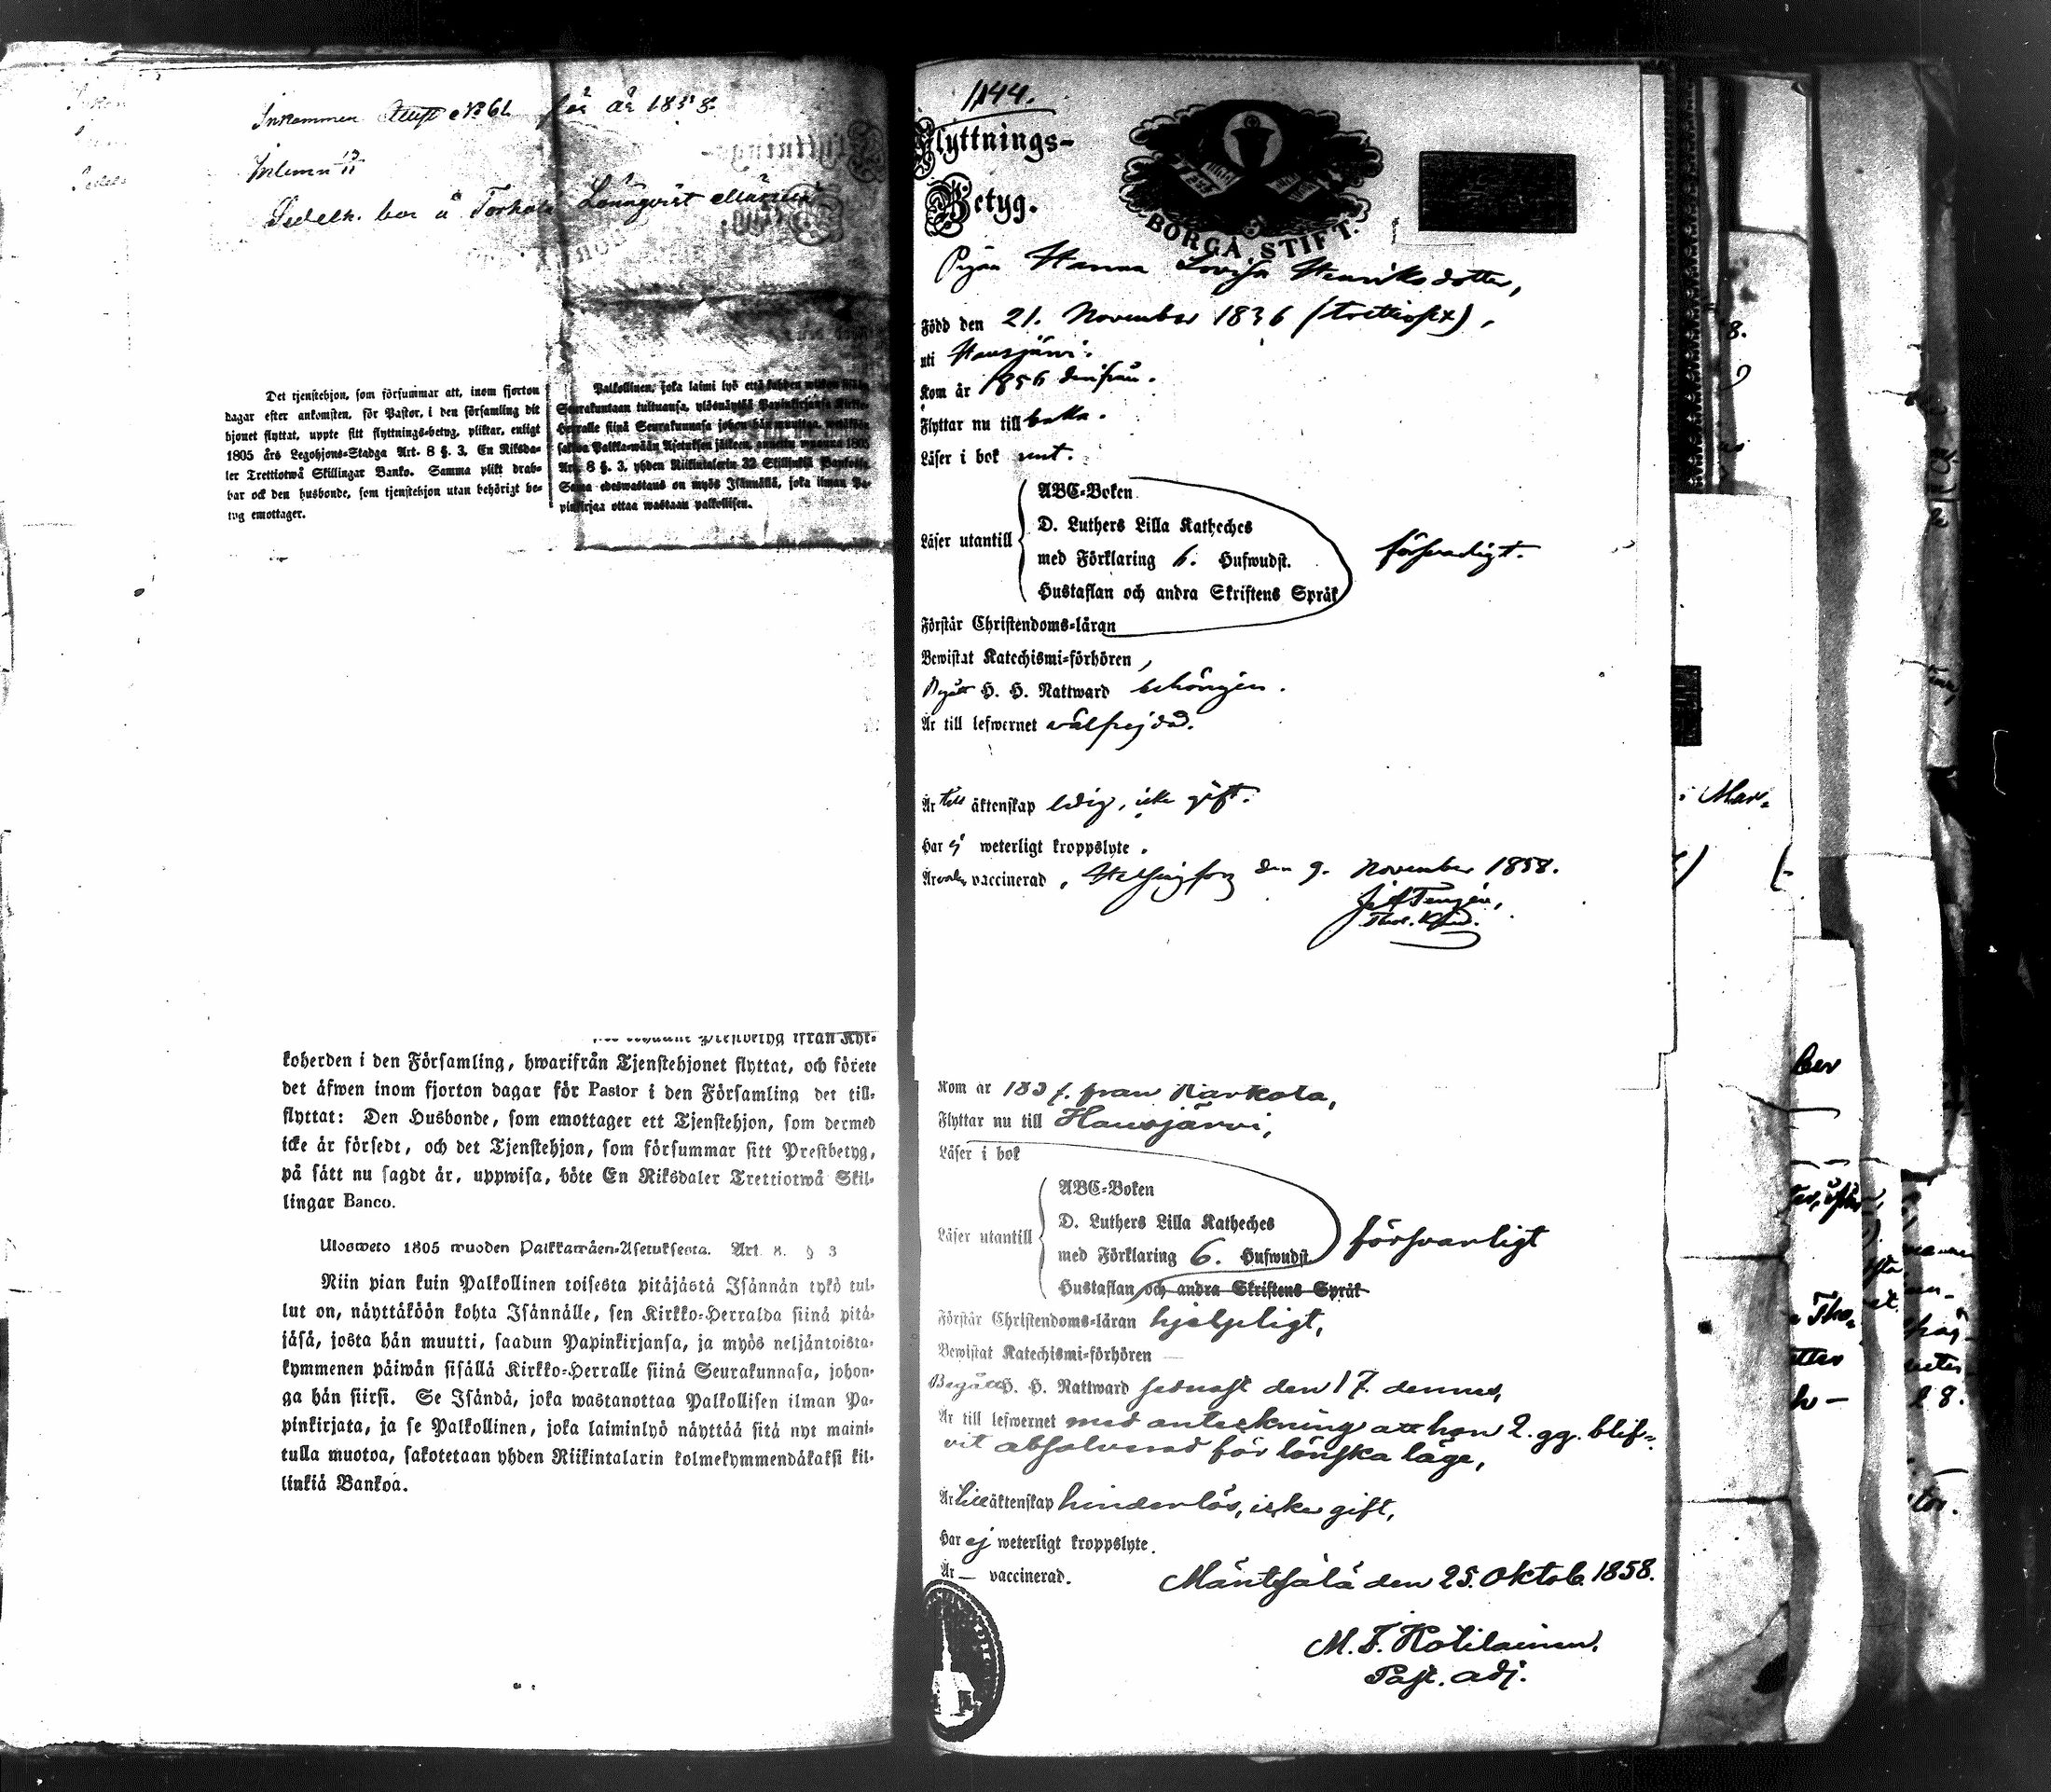 Inkommen Attest No 61 för år 1858.
Sedeln. bor å Torhola Lönnqvist
Det tjenstehjon, som försummar att, inom fjorton
dagar efter ankomsten, för Pastor, i den församling dit
hjonet flyttat, uppte sitt flyttnings-betyg, pliktar, enligt
1805 års Legohjons-Stadga Art. 8 §. 3, En Riksda-
ler Trettiotwå Skillingar Banko. Samma plikt drab-
bar ock den husbonde, som tjenstehjon utan behörigt be-
tyg emottager.
Palkollinen, joka laimi lyö että kahden wiikon
Seurakuntaan tultuansa, ylösnäyttää Papinkirjansa Kirkko-
Herralle siinä Seurakunnasa johon hän muuttaa,
sakoa Palkka-wään Asetuksen jälkeen, annettu wuonna 1805
Art. 8 §. 3, yhden Riikintalarin 32 Skillinkiä Bankosa.
Sama edeswastaus on myös Isännällä, joka ilman Pa-
pinkirjaa ottaa wastaan palkollisen.
Prestbetyg ifrån Kyr-
koherden i den Församling, hwarifrån Tjenstehjonet flyttat, och förete
det äfwen inom fjorton dagar för Pastor i den Församling det till-
flyttat: Den Husbonde, som emottager ett Tjenstehjon, som dermed
icke är försedt, och det Tjenstehjon, som försummar sitt Prestbetyg,
på sätt nu sagdt är, uppwisa, böte En Riksdaler Trettiotwå Skil-
lingar Banco.
Ulosweto 1805 wuoden Palkkawäen-Asetuksesta. Art. 8. § 3
Niin pian kuin Palkollinen toisesta pitäjästä Isännän tykö tul-
lut on, näyttäköön kohta Isännälle, sen Kirkko-Herralda siinä pitä-
jäsä, josta hän muutti, saadun Papinkirjansa, ja myös neljäntoista-
kymmenen päiwän sisällä Kirkko-Herralle siinä Seurakunnasa, johon-
ga hän siirsi. Se Isändä, joka wastanottaa Palkollisen ilman Pa-
pinkirjata, ja se Palkollinen, joka laiminlyö näyttää sitä nyt maini-
tulla muotoa, sakotetaan yhden Riikintalarin kolmekymmendäkaksi kil-
linkiä Bankoa.
1144.
Flyttnings-
Betyg.
BORGÅ STIFT.
Pigan Hanna Lovisa Henriksdotter,
Född den 21. November 1836 (trettiosex),
uti Hausjärvi.
Kom år 1856 derifrån.
Flyttar nu till baka.
Läser i bok rent.
ABC-Boken
D. Luthers Lilla Katheches
Läser utantill
med Förklaring 6. Hufwudst.
försvarligt.
Hustaflan och andra Skriftens Språk
Förstår Christendoms-läran
Bewistat Katechismi-förhören,
Begått H. H. Nattward behörigen.
Är till lefwernet välfrejdad.
Är till äktenskap ledig, icke gift.
Har ej weterligt kroppslyte.
Är vaccinerad, Helsingfors den 9. November 1858.
Kom år från Kärkölä,
Flyttar nu till Hausjärvi,
Läser i bok
ABC-Boken
D. Luthers Lilla Katheches
Läser utantill
med Förklaring 6. Hufwudst.
försvarligt
Hustaflan och andra Skriftens Språk
Förstår Christendoms-läran hjelpligt,
Bewistat Katechismi-förhören —
Begått H. H. Nattward sednast den 17. dennes,
Är till lefwernet med anteckning att hon 2. gg. blif-
vit absolverad för lönska läge,
Är till äktenskap hinderlös, icke gift,
Har ej weterligt kroppslyte.
Är — vaccinerad.
Mäntsälä den 25. Oktob. 1858.
M. F. Kotilainen.
Past. adj.